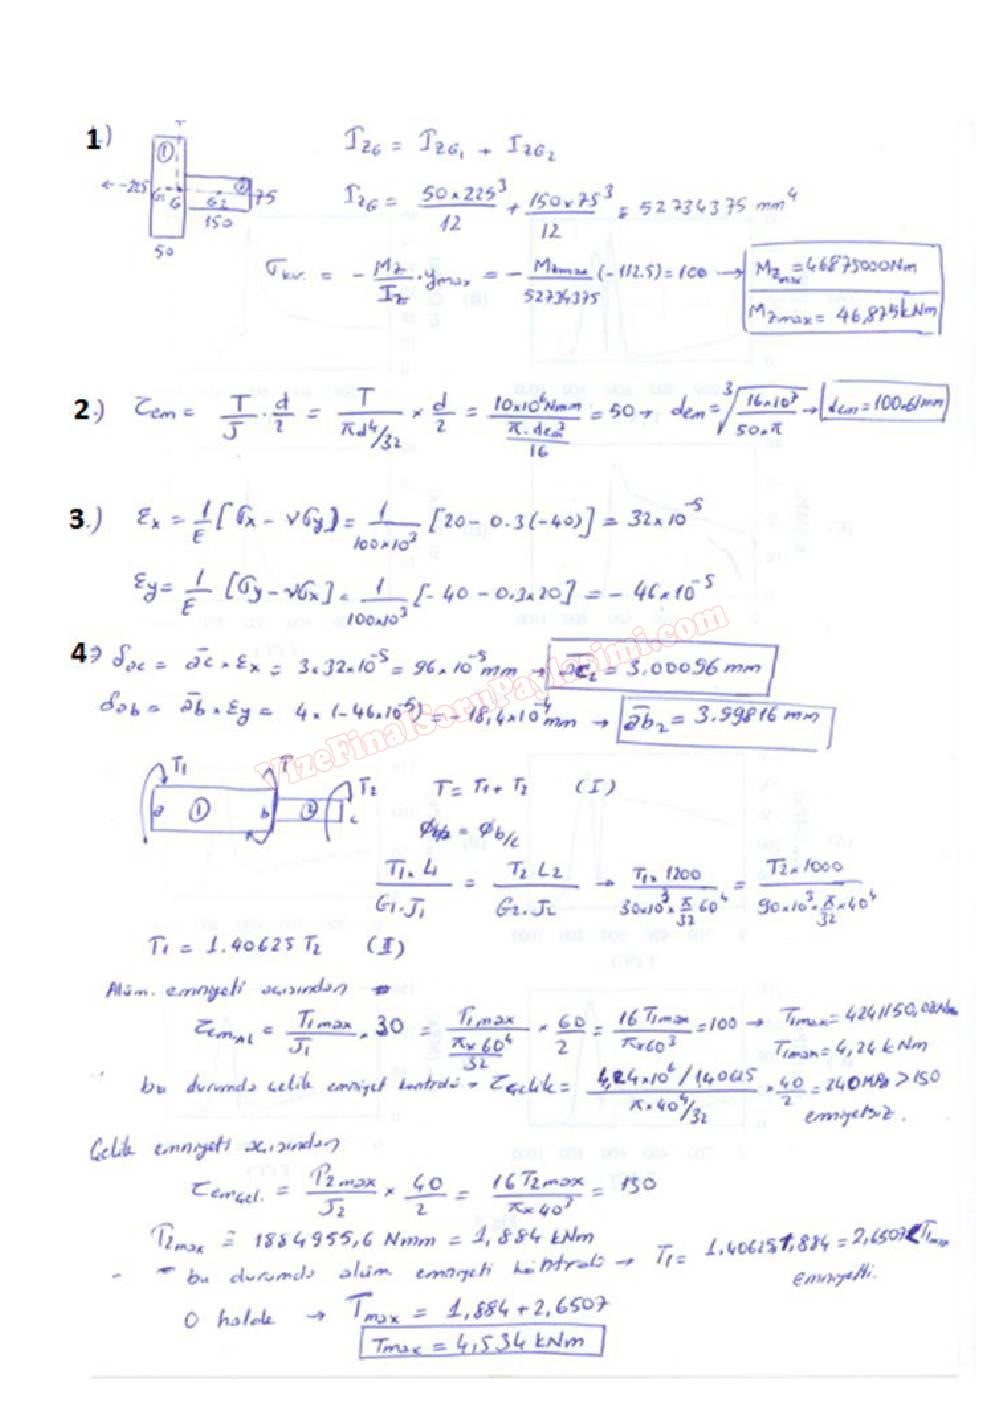 1.)
① ②
225
G₁ G G₂
75
150
50
I_ZG = I_ZG₁ + I_ZG₂
I_ZG = 50×225³/12 + 150×75³/12 = 52734375 mm⁴
= - Mz/Iz · ymax = - Mzmax/52734375 (-112.5) = 100 → Mzmax = 46875000Nm
Mzmax = 46,875kNm
2.) τem = T/J · d/2 = T/(πd⁴/32) × d/2 = 10×10⁶Nmm/(π.dem³/16) = 50 → dem = ³√(16×10⁷/50×π) → dem = 100.61mm
3.) εx = 1/E [σx - νσy] = 1/100×10³ [20 - 0.3(-40)] = 32×10⁻⁵
εy = 1/E [σy - νσx] = 1/100×10³ [-40 - 0.3×20] = -46×10⁻⁵
4) δac = ac × εx = 3.32×10⁻⁵ = 96×10⁻⁵mm → ac₂ = 3.00096 mm
δab = ab × εy = 4×(-46×10⁻⁵) = -18,4×10⁻⁴mm → ab₂ = 3.99816 mm
VizeFinalSoruPaylasimi.com
T₁ T T₂
a ① b ② c
T = T₁ + T₂ (I)
Φb/a = Φb/c
T₁.L₁/G₁.J₁ = T₂ L₂/G₂.J₂ → T₁×1200/(30×10³×π/32 60⁴) = T₂×1000/(90×10³×π/32×40⁴)
T₁ = 1.40625 T₂ (II)
Alüm. emniyeti açısından →
τem,AL = T₁max/J₁ × 30 = T₁max/(π×60⁴/32) × 60/2 = 16T₁max/π×60³ = 100 → T₁max = 4241150,08Nmm
T₁max = 4,24 kNm
bu durumda çelik emniyet kontrolü → τçelik = 4,24×10⁶/1.40625/(π×40⁴/32) × 40/2 = 240MPa > 150
emniyetsiz.
Çelik emniyeti açısından
τemçel. = T₂max/J₂ × 40/2 = 16T₂max/π×40³ = 150
T₂max = 1884955,6 Nmm = 1,884 kNm
- bu durumda alüm emniyeti kontrolü → T₁ = 1.40625×1,884 = 2,6507 < T₁max
Emniyetli.
O halde → Tmax = 1,884 + 2,6507
Tmax = 4,534 kNm